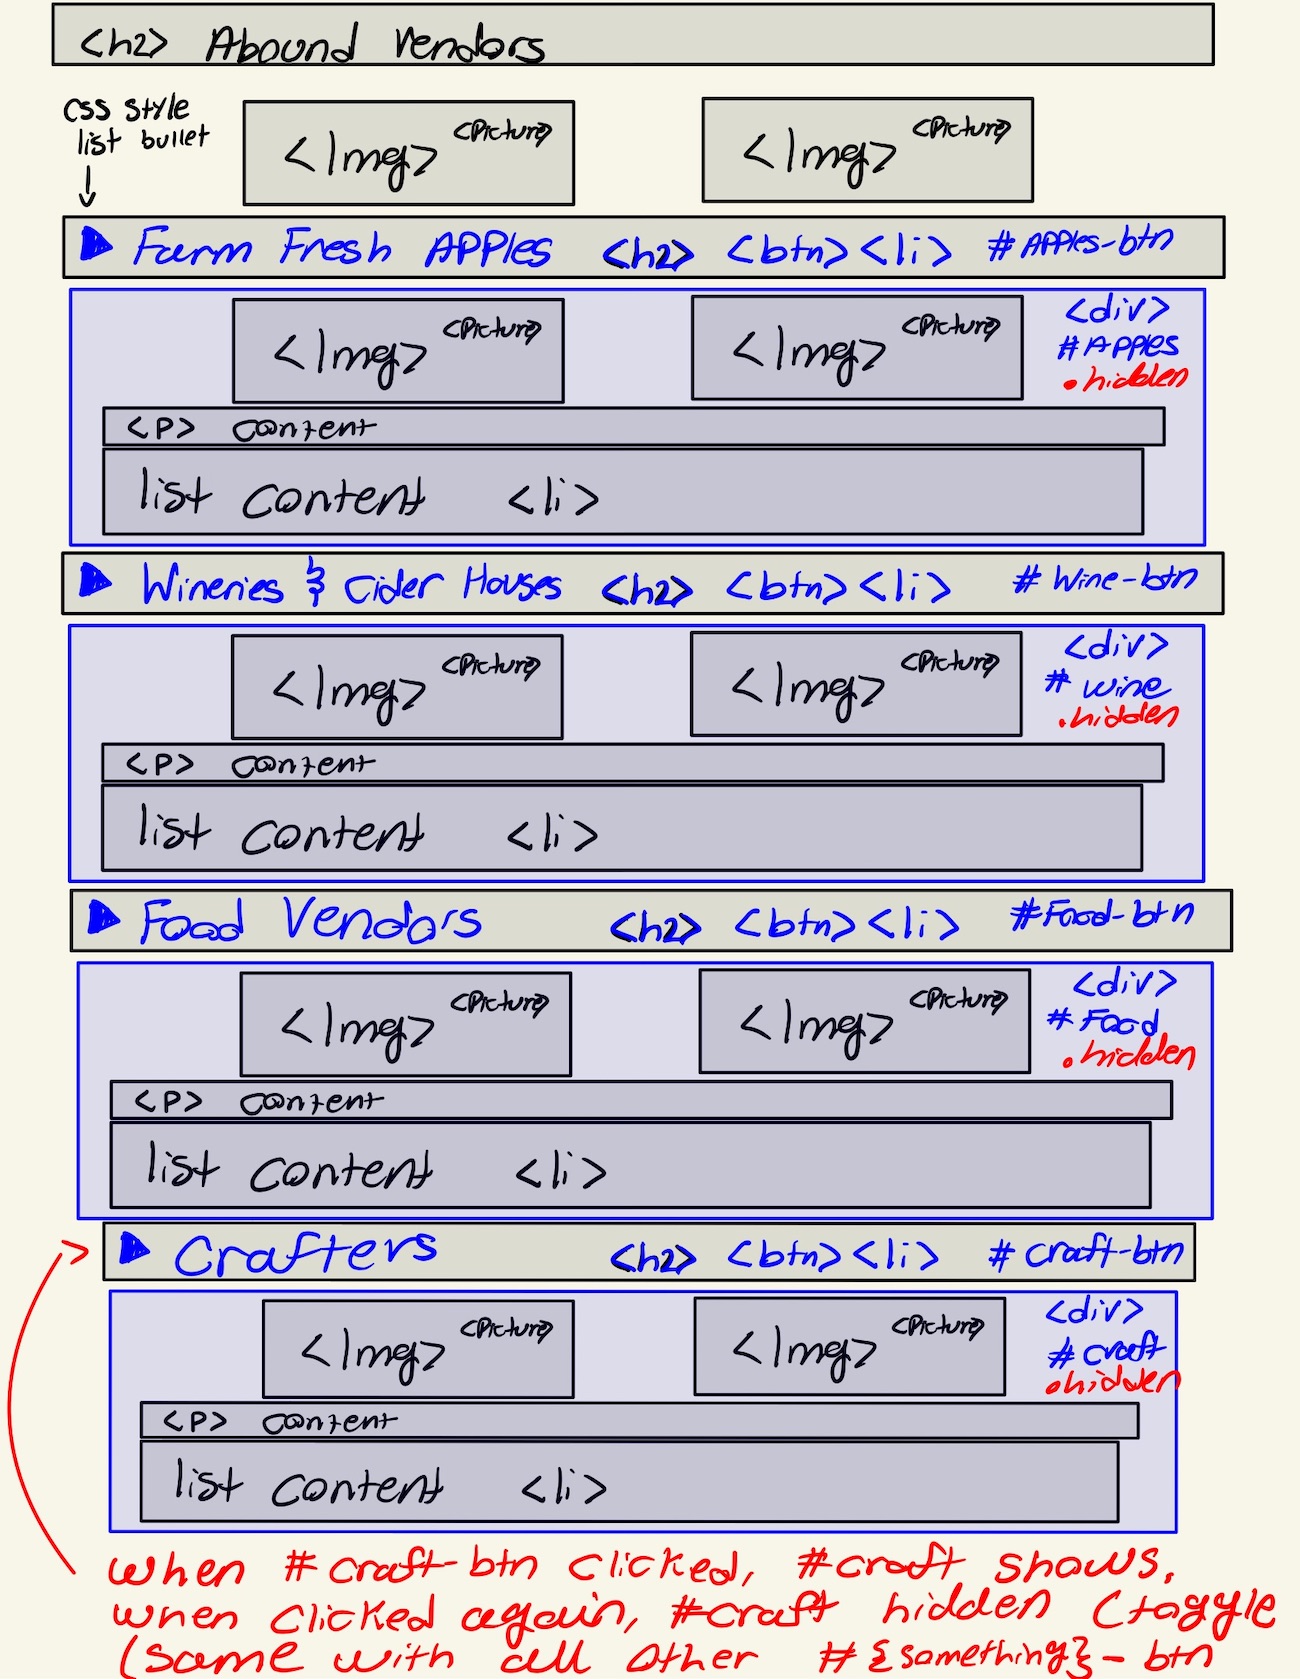 <h2> Abound Vendors
CSS style
list bullet
<Img> <Picture>
<Img> <Picture>
Farm Fresh APPles <h2> <btn> <li> #APPles-btn
<Img> <Picture>
<Img> <Picture>
<div>
#APPles
.hidden
<P> content
list content <li>
Wineries & Cider Houses <h2> <btn> <li> #Wine-btn
<Img> <Picture>
<Img> <Picture>
<div>
# wine
.hidden
<P> content
list content <li>
Food Vendors <h2> <btn> <li> #Food-btn
<Img> <Picture>
<Img> <Picture>
<div>
# Food
.hidden
<P> content
list content <li>
Crafters <h2> <btn> <li> # craft-btn
<Img> <Picture>
<Img> <Picture>
<div>
# craft
.hidden
<P> content
list content <li>
when #craft-btn clicked, #craft shows,
when clicked again, #craft hidden (toggle
(same with all other #{something}-btn